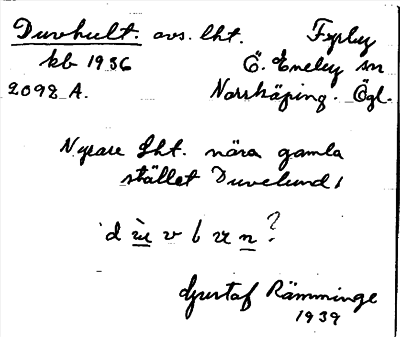 Duvhult. avs. lht. Fryeby
kb 1936 Ö. Eneby sn
2098 A. Norrköping. Ögl.
Nyare lht. nära gamla
stället Duvelund,
Gustaf Rämminge
1939